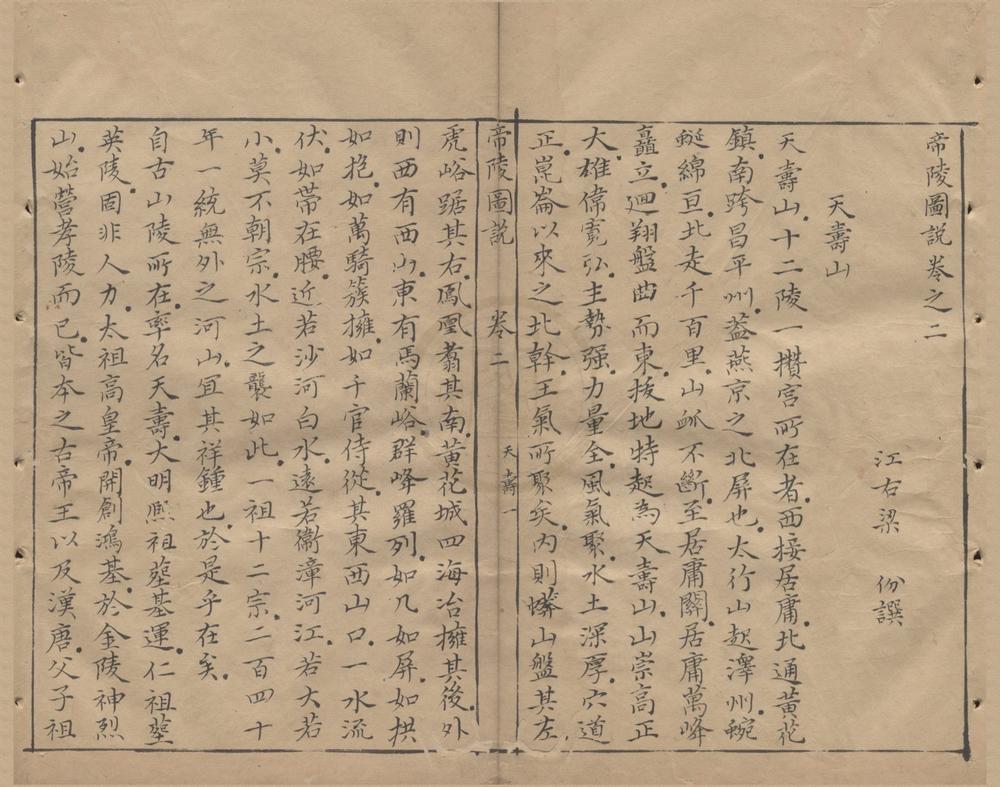 帝陵圖説卷之二
江右梁　份譔
天壽山
天壽山十二陵一攢宫所在者西接居庸北通黄花
鎮南跨昌平州葢燕京之北屏也太行山起澤州蜿
蜒綿亘北走千百里山脈不斷至居庸關居庸萬峰
矗立迴翔盤曲而東拔地特起為天壽山山崇高正
大雄偉寛弘主勢强力量全風氣聚水土深厚穴道
正崑崙以來之北幹王氣所聚矣内則蟒山盤其左
帝陵圖説　卷二　天壽一
虎峪踞其右鳳凰翥其南黄花城四海冶擁其後外
則西有西山東有馬蘭峪群峰羅列如几如屏如拱
如抱如萬騎簇擁如千官侍從其東西山口一水流
伏如帶在腰近若沙河白水遠若衞漳河江若大若
小莫不朝宗水土之襲如此一祖十二宗二百四十
年一統無外之河山宜其祥鍾也於是乎在矣
自古山陵所在率名天壽大明熙祖塟基運仁祖塟
英陵固非人力太祖高皇帝開創鴻基於金陵神烈
山始營孝陵而已皆本之古帝王以及漢唐父子祖